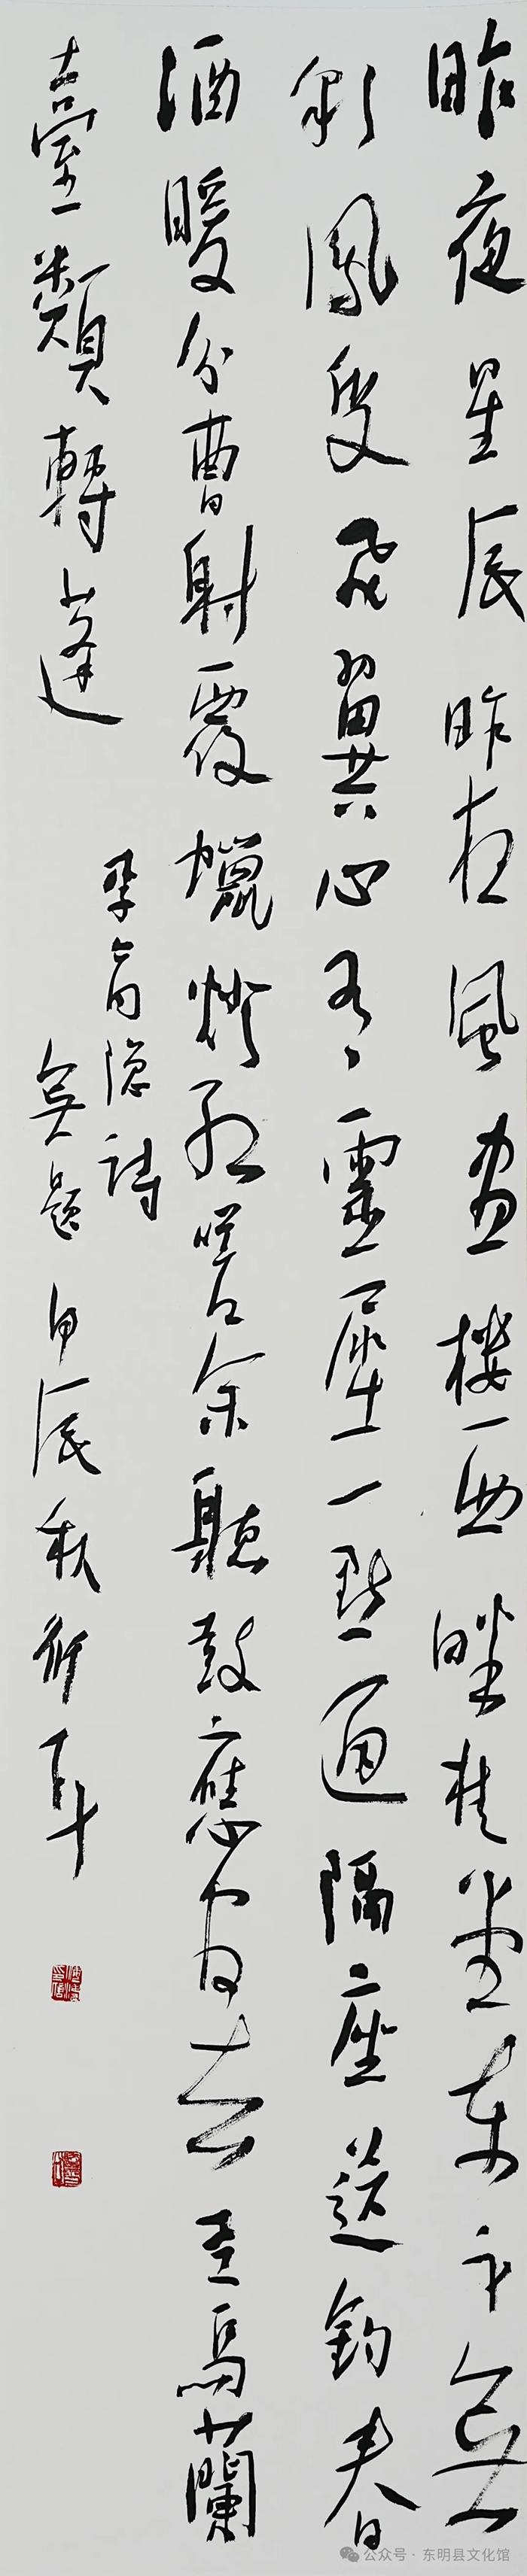 昨夜星辰昨夜風畫樓西畔桂堂東身無
彩鳳雙飛翼心有靈犀一點通隔座送鈎春
酒暖分曹射覆蠟燈紅嗟余聽鼓應官去走馬蘭
臺類轉蓬
李商隱詩
無題 甲辰秋
公众号 · 东明县文化馆